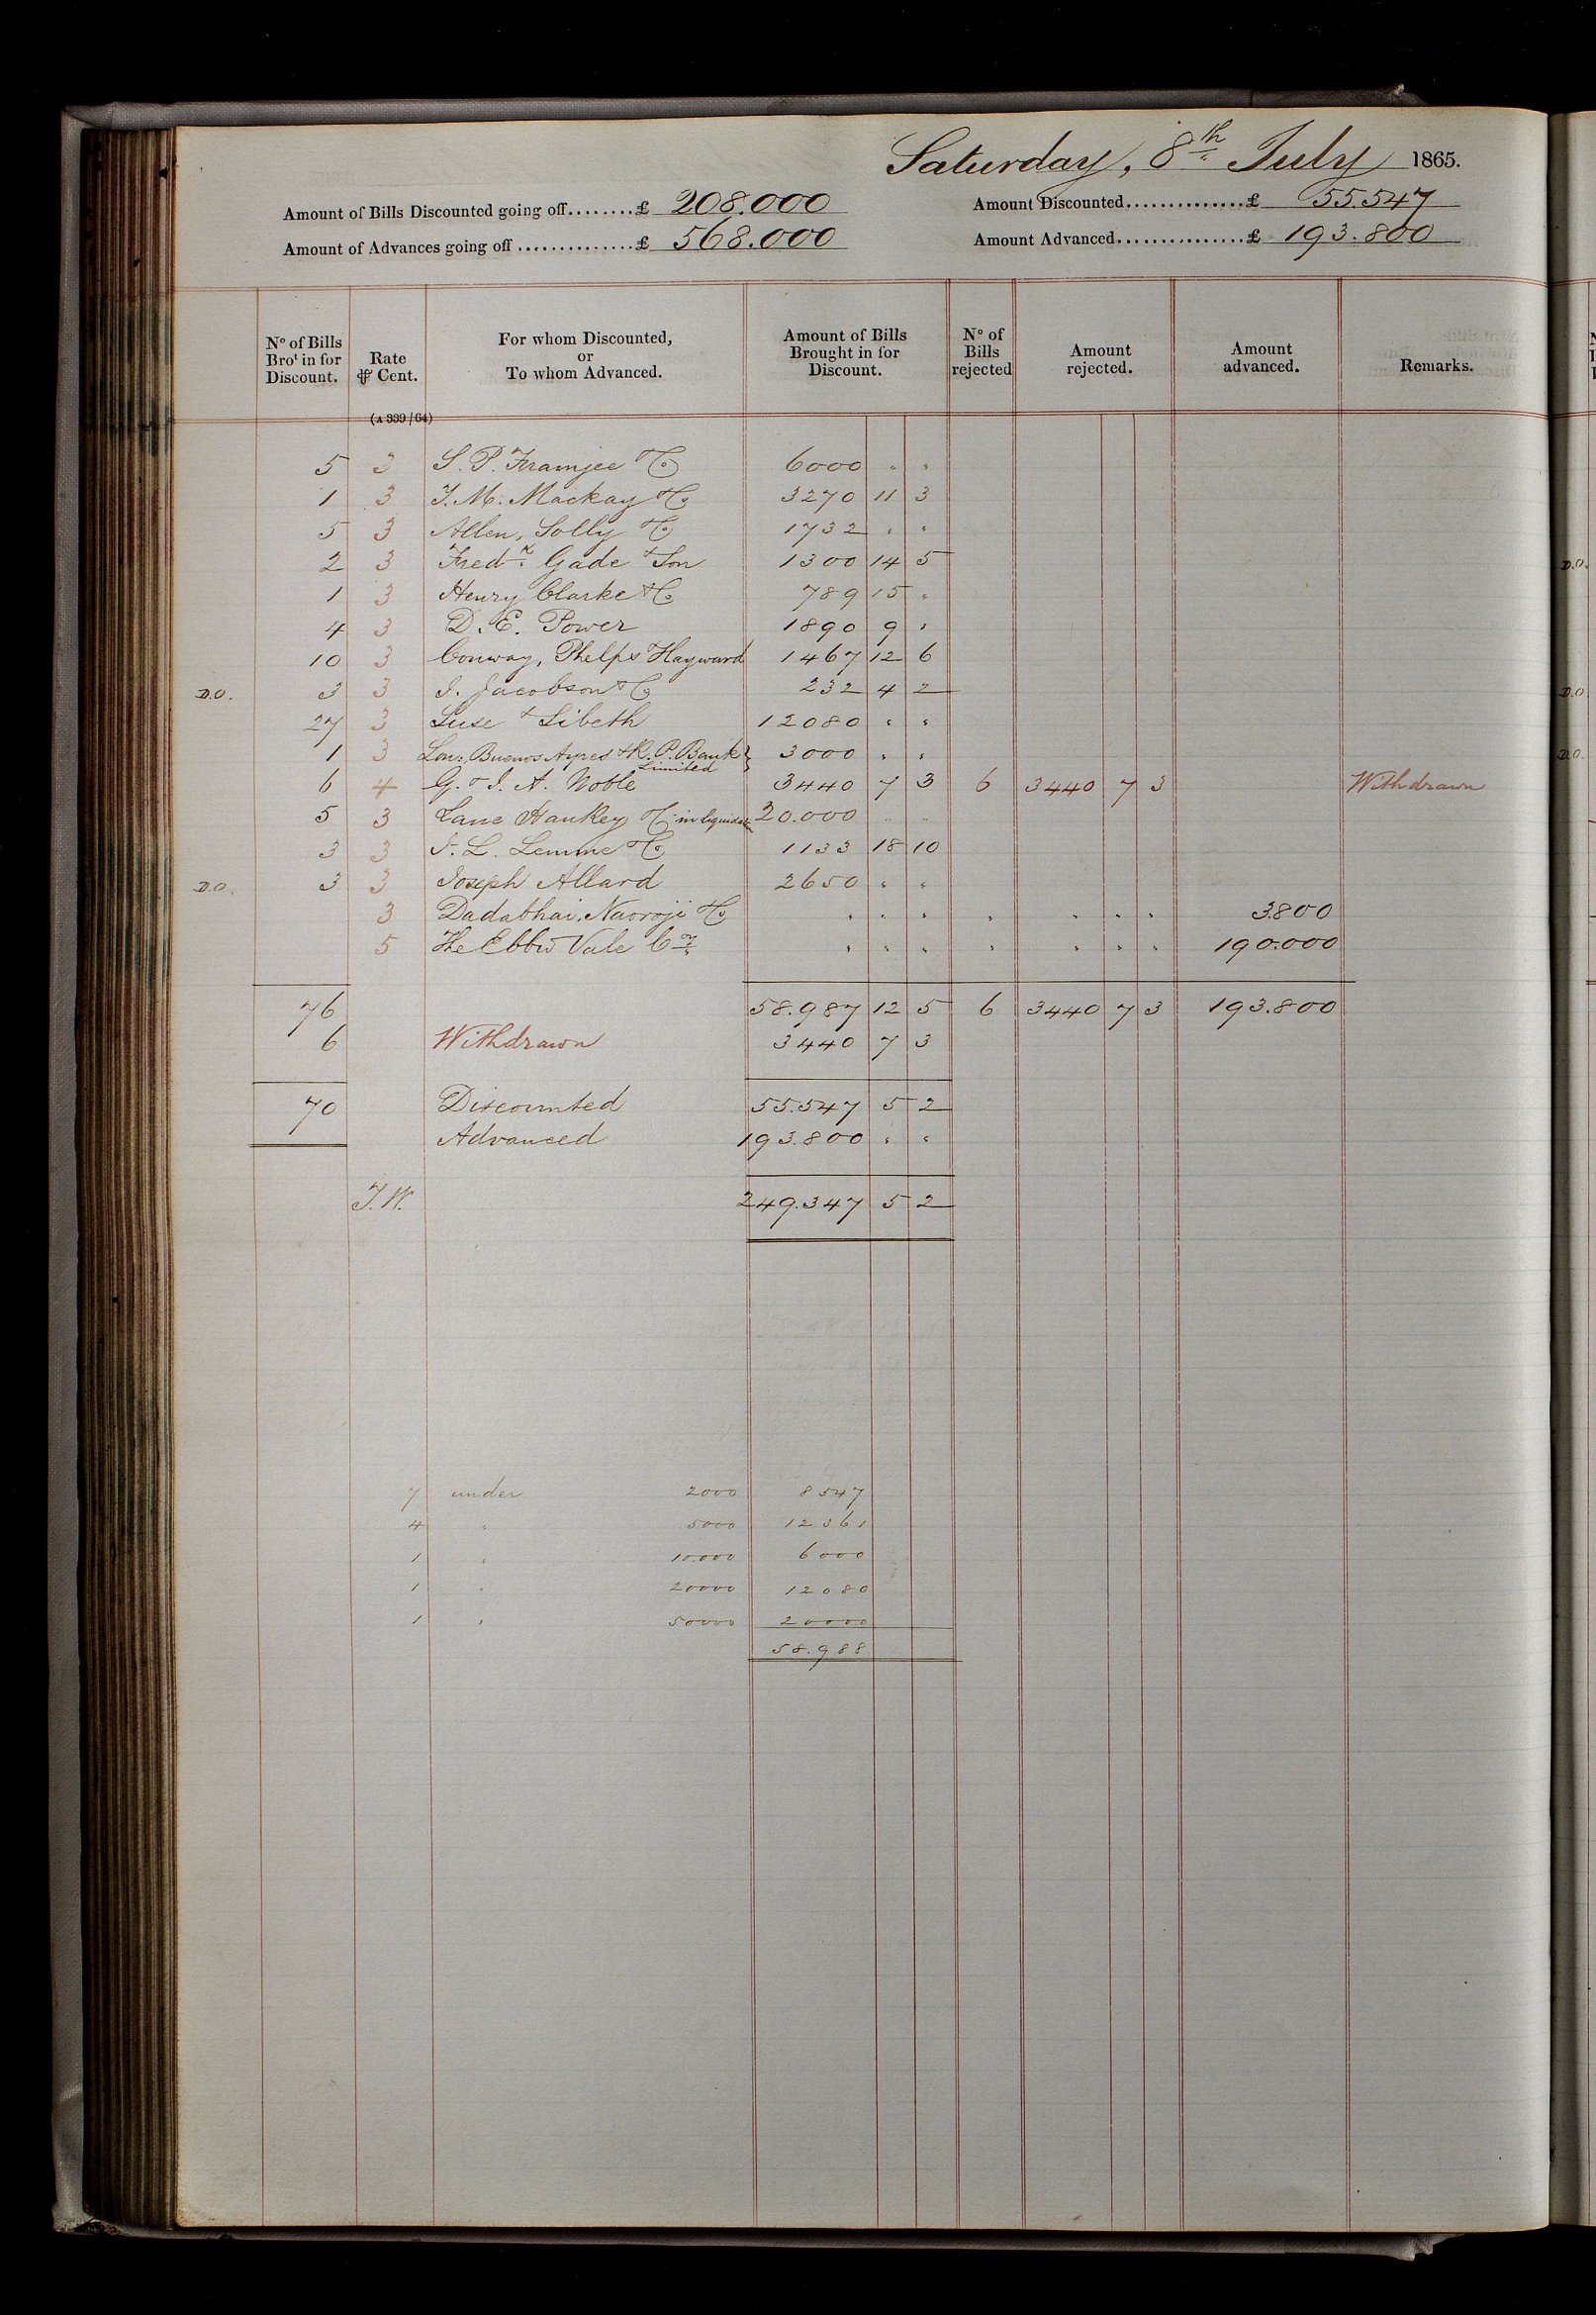 Saturday, 8th July 1865.
Amount of Bills Discounted going off........£ 208.000 Amount Discounted..............£ 55.547
Amount of Advances going off..............£ 568.000 Amount Advanced...............£ 193.800
No of Bills Brot in for Discount. Rate ⅌ Cent. For whom Discounted, or To whom Advanced. Amount of Bills Brought in for Discount. No of Bills rejected Amount rejected. Amount advanced. Remarks.
(A 339/64)
5 3 S. P. Framjee & Co 6000 " "
1 3 T. M. Mackay & Co 3270 11 3
5 3 Allen, Solly & Co 1732 " "
2 3 Fredk Gade & Son 1300 14 5
1 3 Henry Clarke & Co 789 15 "
4 3 D. E. Power 1890 9 "
10 3 Conway, Phelps & Hayward 1467 12 6
D.O. 3 3 I. Jacobson & Co 232 4 2
27 3 Luse & Libeth 12080 " "
1 3 Lon: Buenos Ayres & R. P. Bank Limited } 3000 " "
6 4 G. & J. A. Noble 3440 7 3 6 3440 7 3 Withdrawn
5 3 Lane Hankey & Co in liquidation 20.000 " "
3 3 J. L. Lemme & Co 1133 18 10
D.O. 3 3 Joseph Allard 2650 " "
3 Dadabhai, Naoroji & Co " " " " " " " 3.800
5 The Ebbw Vale Coy " " " " " " " 190.000
76 58.987 12 5 6 3440 7 3 193.800
6 Withdrawn 3440 7 3
70 Discounted 55.547 5 2
Advanced 193.800 " "
T.W. 249.347 5 2
7 under 2000 8547
4 " 5000 12361
1 " 10.000 6000
1 " 20000 12080
1 " 50000 20000
58.988
D.O.
D.O
D.O.